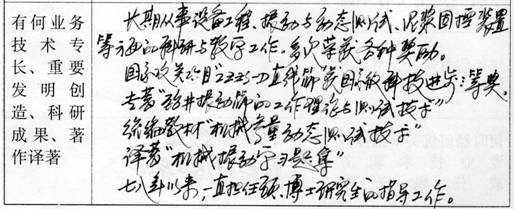 有何业务
技术专
长、重要
发明创
造、科研
成果、著
作译著
长期从事设备工程、振动与动态测试、泥浆固控装置
等方面的科研与教学工作。多次荣获各种奖励。
国家攻关项目2225-D直线筛获国家级科技进步二等奖。
专著"钻井振动筛的工作理论与测试技术"
统编教材"机械量动态测试技术"
译著"机械振动学习题集"
七八年以来,一直担任硕、博士研究生的指导工作。